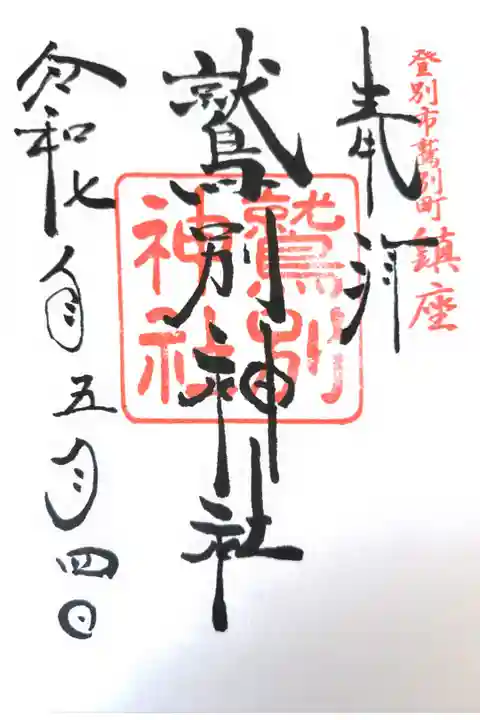 登別市鷲別町鎮座
奉拝
鷲別神社
鷲別神社
令和七年五月四日